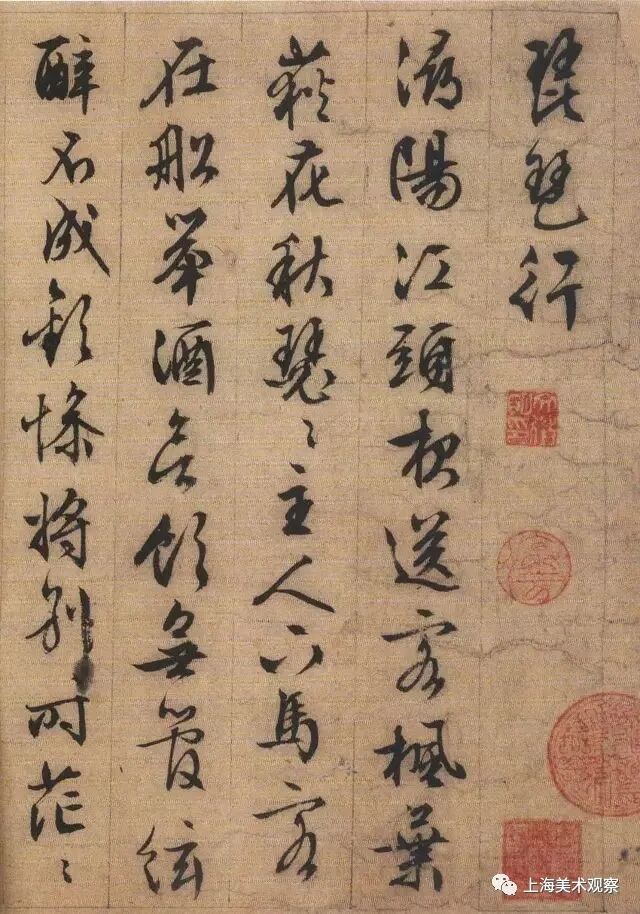 琵琶行
潯陽江頭夜送客楓葉
荻花秋瑟〻主人下馬客
在船舉酒欲飲無管絃
醉不成歡慘將別時茫〻
上海美术观察